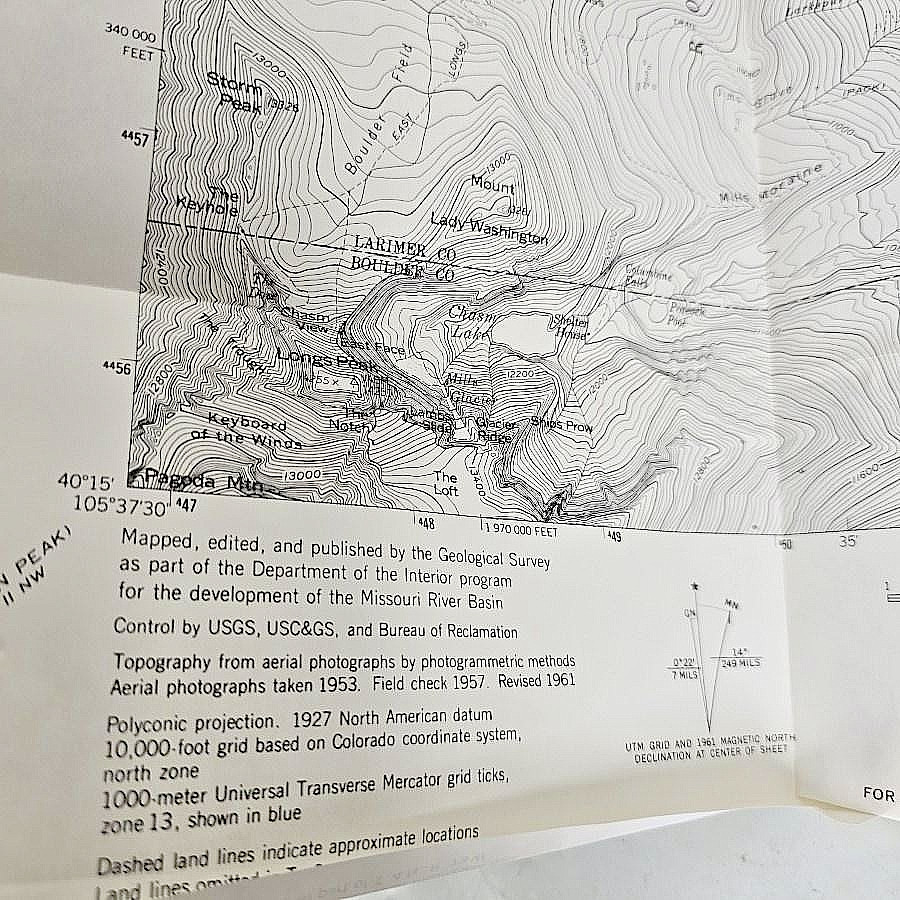 340 000
FEET
Storm
Peak
13326
13000
Boulder
Field
EAST
LONGS
4457
The
Keyhole
13000
Mount
Lady Washington
Mills Moraine
11000
LARIMER CO
BOULDER CO
Columbine
Falls
Peacock
Pool
Chasm
View
Chasm
Lake
Shelter
House
East Face
Longs Peak
4456
12800
12200
12000
Mills
Glacier
Keyboard
of the Winds
The
Notch
Lambs
Slide
Glacier
Ridge
Ships Prow
Pagoda Mtn
13000
The
Loft
13400
11600
40°15'
105°37'30"
447
448
1 970 000 FEET
449
450
35'
N PEAK)
11 NW
Mapped, edited, and published by the Geological Survey
as part of the Department of the Interior program
for the development of the Missouri River Basin
Control by USGS, USC&GS, and Bureau of Reclamation
Topography from aerial photographs by photogrammetric methods
Aerial photographs taken 1953. Field check 1957. Revised 1961
Polyconic projection. 1927 North American datum
10,000-foot grid based on Colorado coordinate system,
north zone
1000-meter Universal Transverse Mercator grid ticks,
zone 13, shown in blue
Dashed land lines indicate approximate locations
Land lines omitted
GN
MN
0°22'
7 MILS
14°
249 MILS
UTM GRID AND 1961 MAGNETIC NORTH
DECLINATION AT CENTER OF SHEET
1
FOR